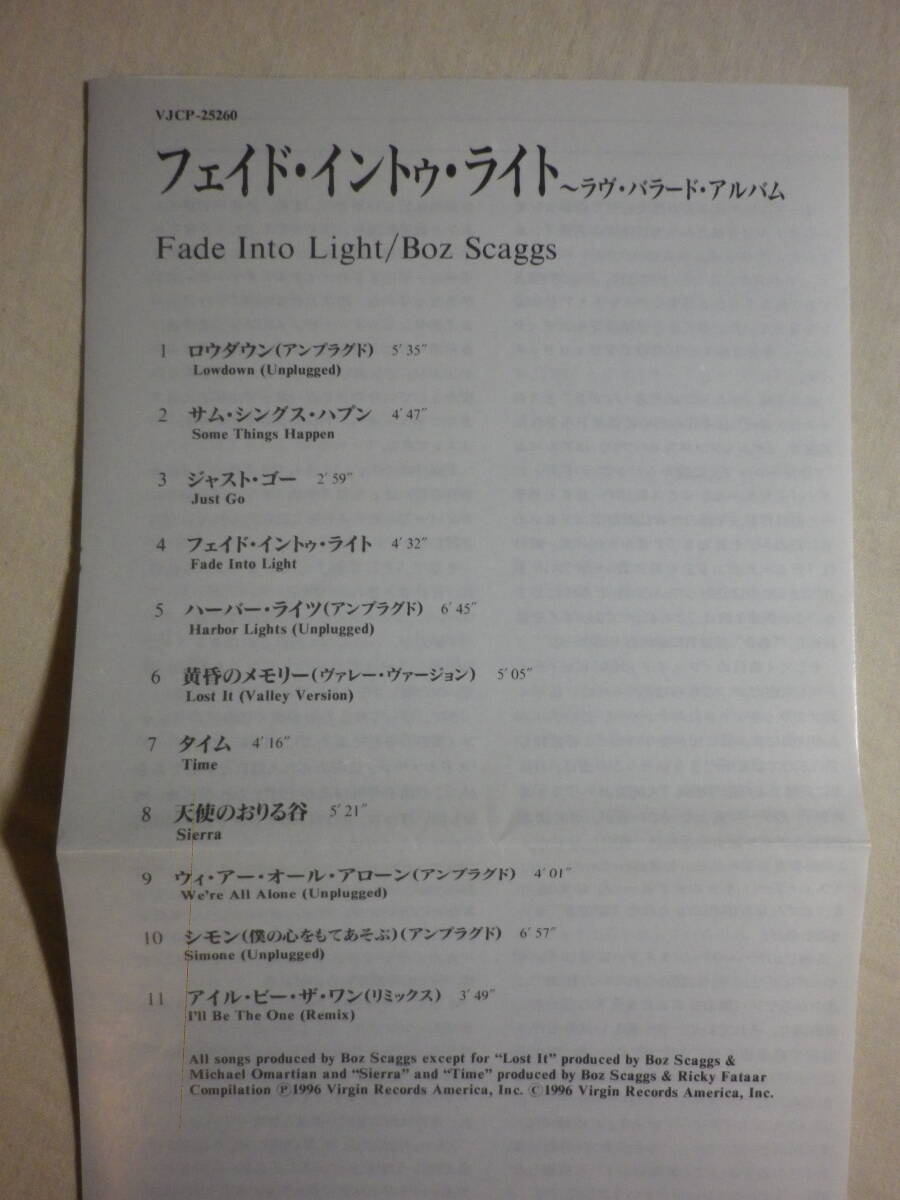 VJCP-25260
フェイド・イントゥ・ライト～ラヴ・バラード・アルバム
Fade Into Light/Boz Scaggs
1 ロウダウン(アンプラグド) 5′35″
Lowdown (Unplugged)
2 サム・シングス・ハプン 4′47″
Some Things Happen
3 ジャスト・ゴー 2′59″
Just Go
4 フェイド・イントゥ・ライト 4′32″
Fade Into Light
5 ハーバー・ライツ(アンプラグド) 6′45″
Harbor Lights (Unplugged)
6 黄昏のメモリー(ヴァレー・ヴァージョン) 5′05″
Lost It (Valley Version)
7 タイム 4′16″
Time
8 天使のおりる谷 5′21″
Sierra
9 ウィ・アー・オール・アローン(アンプラグド) 4′01″
We're All Alone (Unplugged)
10 シモン(僕の心をもてあそぶ)(アンプラグド) 6′57″
Simone (Unplugged)
11 アイル・ビー・ザ・ワン(リミックス) 3′49″
I'll Be The One (Remix)
All songs produced by Boz Scaggs except for "Lost It" produced by Boz Scaggs &
Michael Omartian and "Sierra" and "Time" produced by Boz Scaggs & Ricky Fataar
Compilation Ⓟ1996 Virgin Records America, Inc. Ⓒ1996 Virgin Records America, Inc.